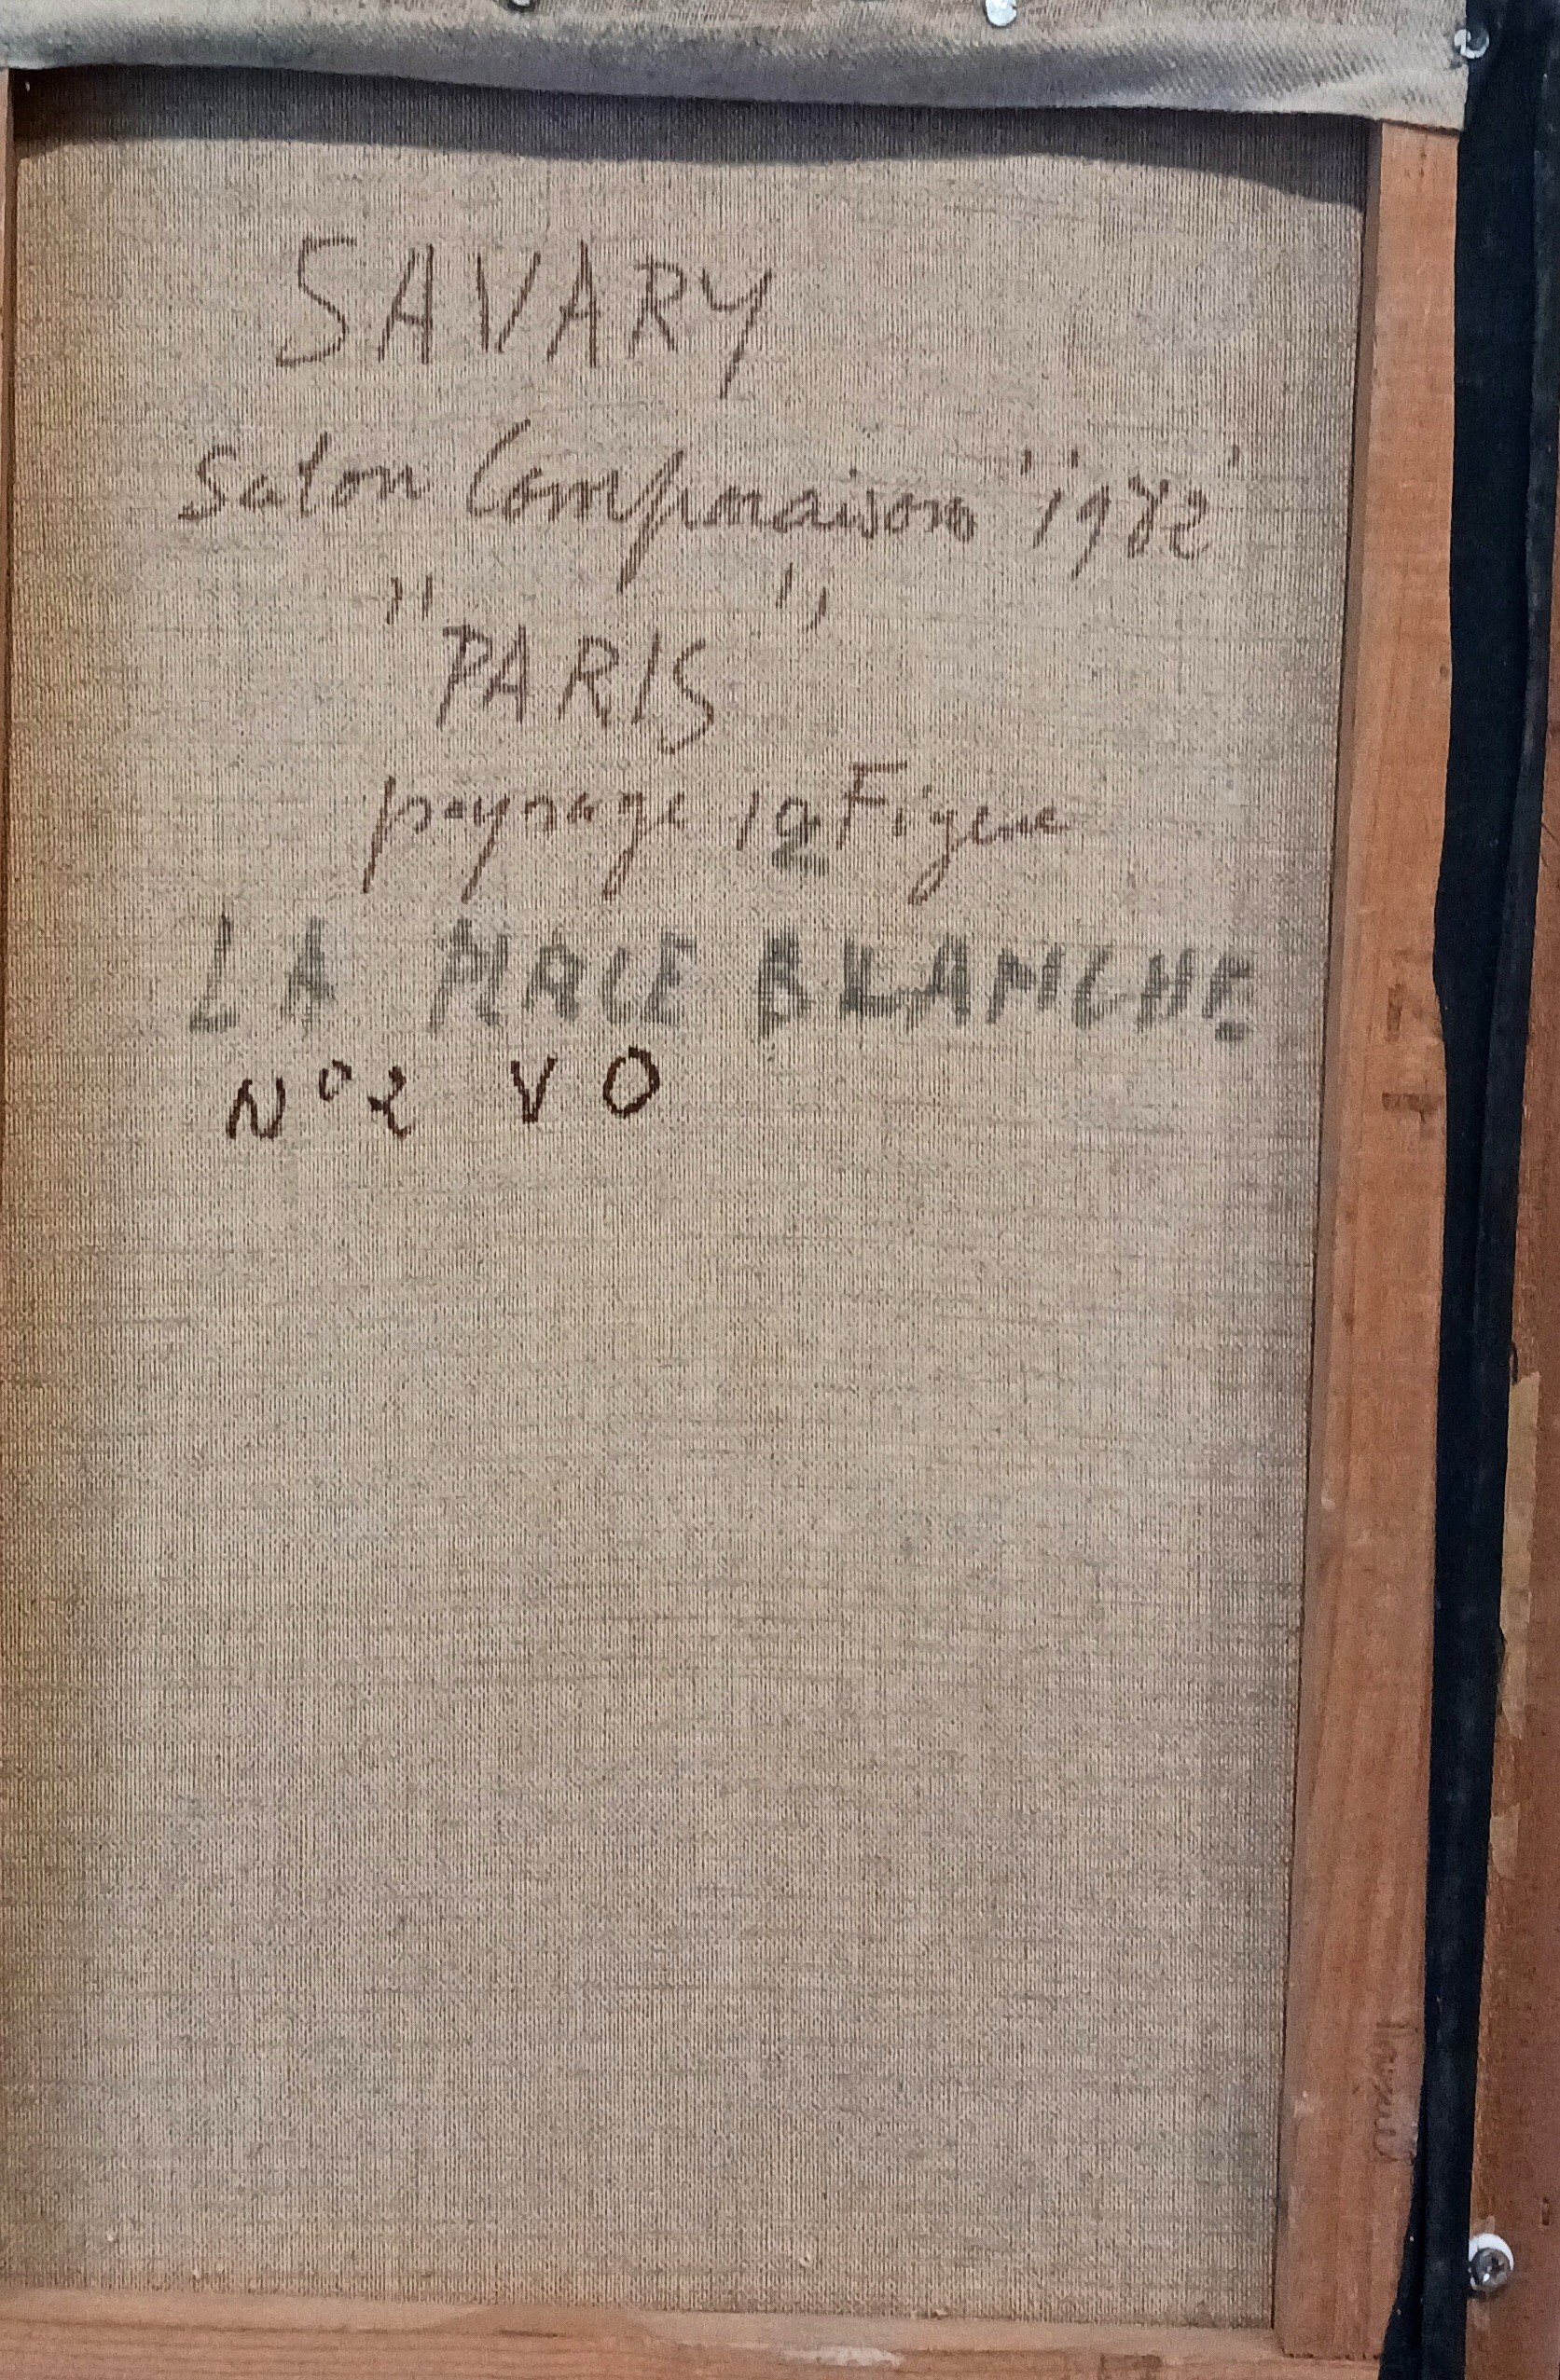 SAVARY
Salon Comparaison "1982"
"PARIS"
paysage 12 Figure
LA PLACE BLANCHE
N°2 VO